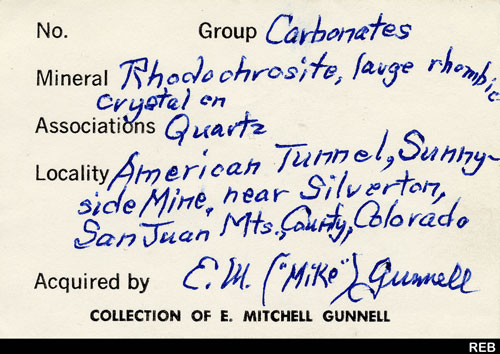 No. Group Carbonates
Mineral Rhodochrosite, large rhombic
crystal on
Associations Quartz
Locality American Tunnel, Sunny-
side Mine, near Silverton,
San Juan Mts., County, Colorado
Acquired by E. M. ("Mike") Gunnell
COLLECTION OF E. MITCHELL GUNNELL
REB